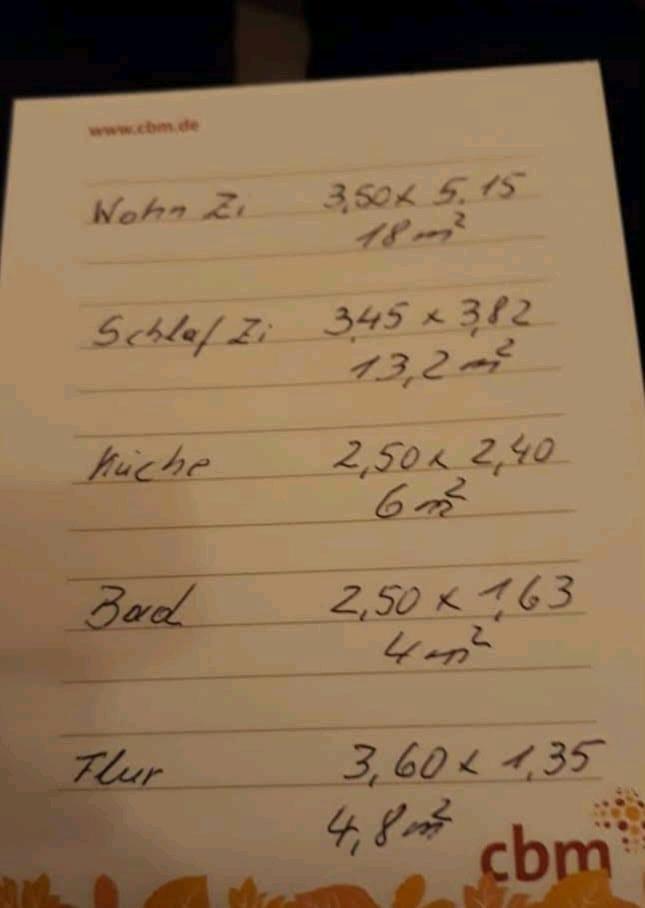 www.cbm.de
Wohn Zi 3,50 x 5.15
18 m²
Schlaf Zi 3,45 x 3,82
13,2 m²
Küche 2,50 x 2,40
6 m²
Bad 2,50 x 1,63
4 m²
Flur 3,60 x 1,35
4,8 m²
cbm